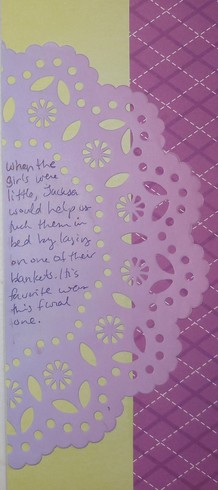 When the
girls were
little, Tucker
would help us
tuck them in
bed by laying
on one of their
blankets. His
favorite was
this floral
one.